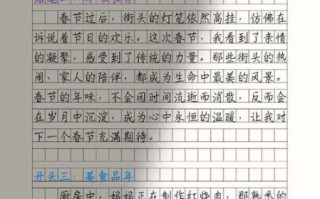 春节过后，街头的灯笼依然高挂，仿佛在
诉说着节日的欢乐。这次春节，我看到了亲情
的凝聚，感受到了传统的力量。那些街头的热
闹、家人的陪伴，都成为生命中最美的风景。
春节的年味，不会因时间流逝而消散，反而会
在岁月中沉淀，成为心中永恒的温暖，让我对
下一个春节充满期待。
开头三：美食品年
厨房中，妈妈正在制作红烧肉，那熟悉的